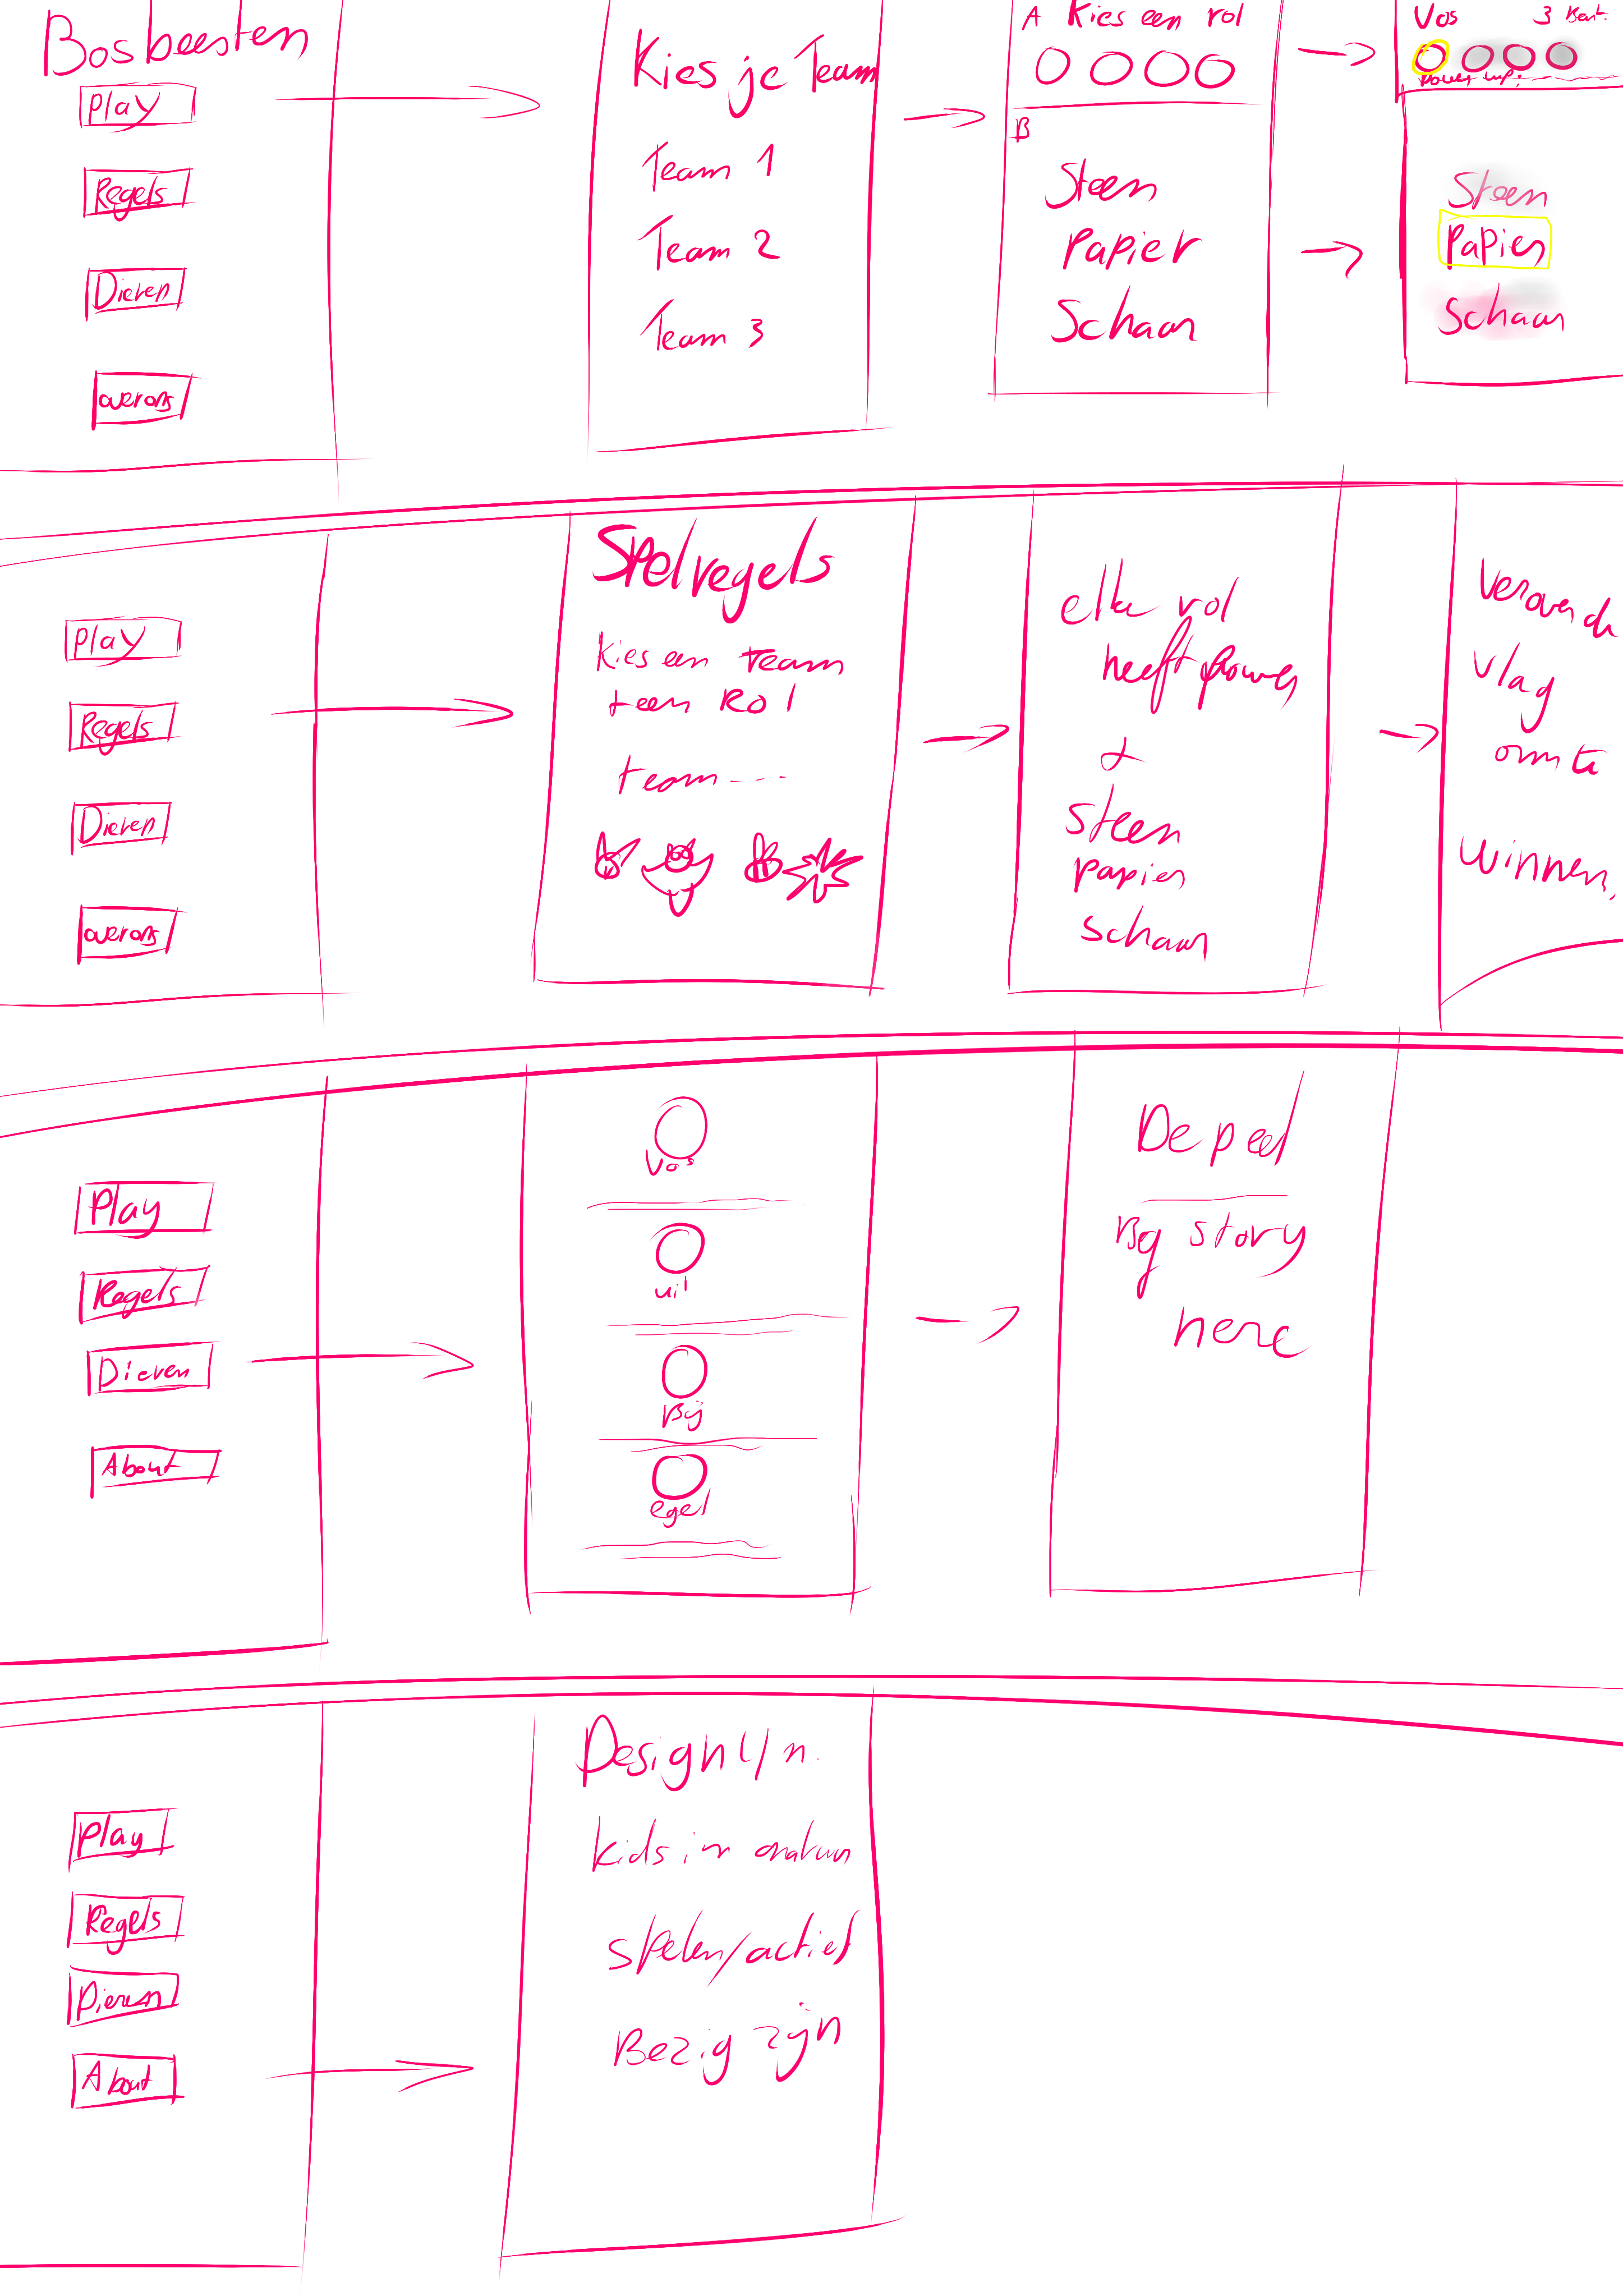 Bosbeesten
Play
Regels
Dieren
overons
Kies je Team
Team 1
Team 2
Team 3
A Kies een rol
B
Steen
Papier
Schaar
Vos 3 
Power up:
Steen
Papier
Schaar
Play
Regels
Dieren
overons
Spelregels
kies een Team
+ een Rol
team ---
elke rol
heeft power
&
Steen
papier
schaar
Verover de
vlag
om te
winnen.
Play
Regels
Dieren
About
Vos
uil
Bij
egel
De peel
Bg story
here
Play
Regels
Dieren
About
Design
kids in
spelen/actief
Bezig zijn